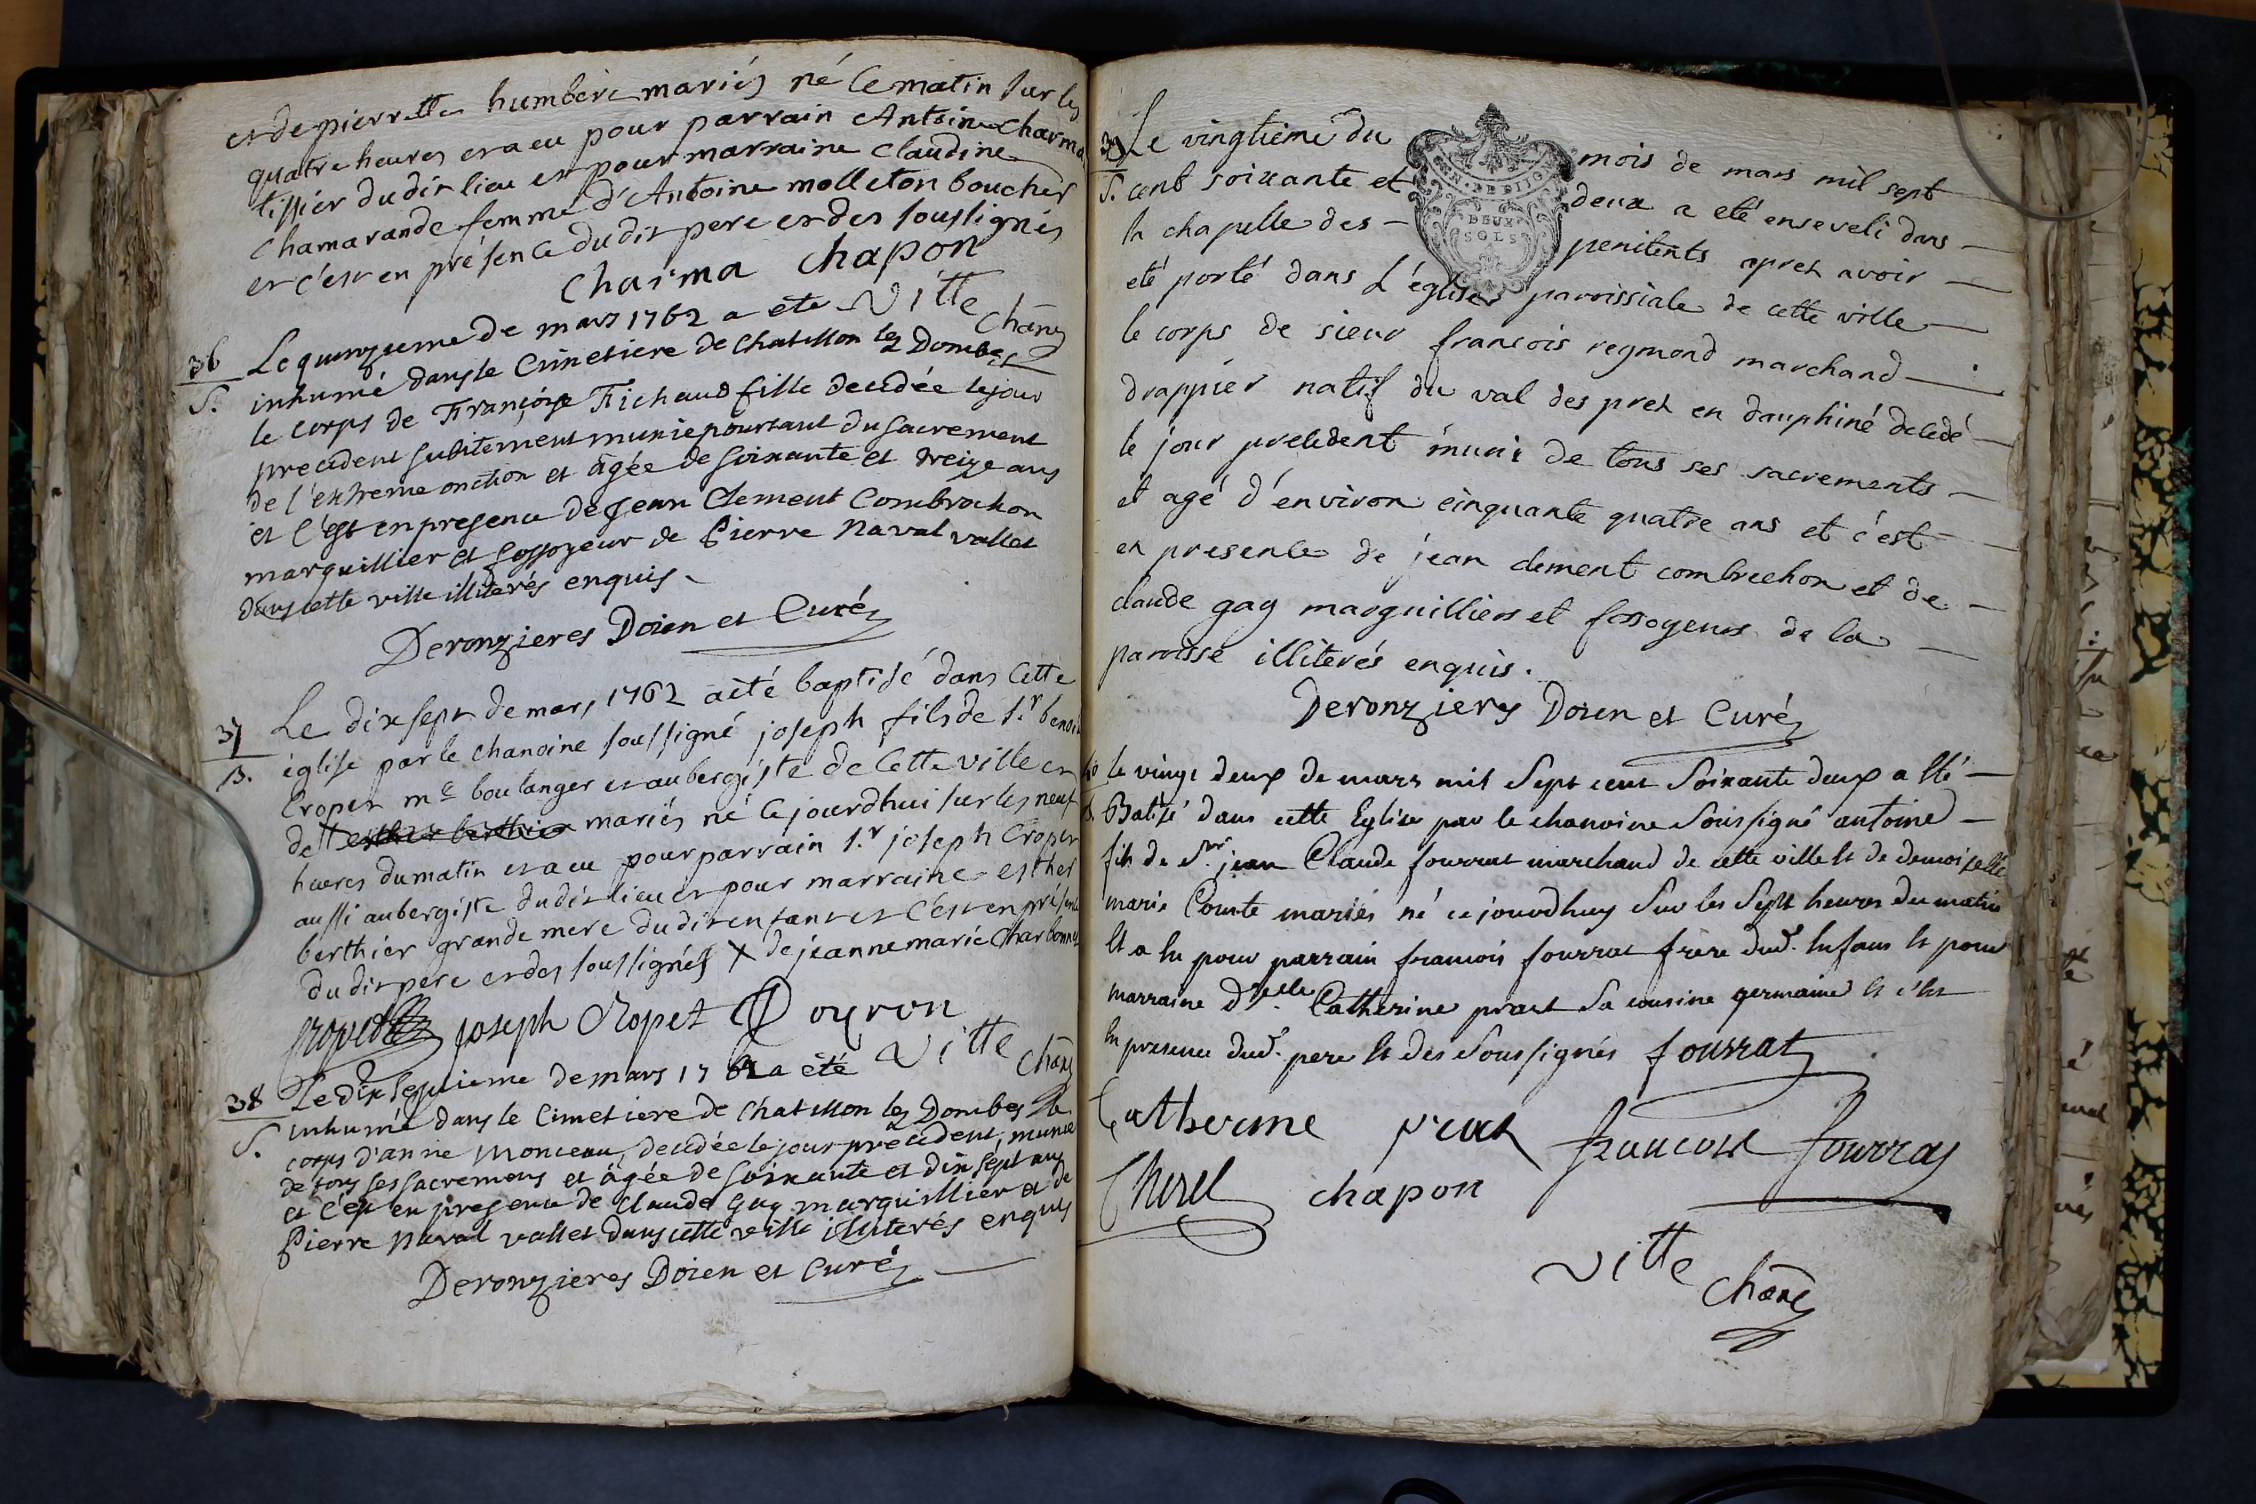 et de pierrette humbert mariés né ce matin sur les
quatre heures et a eu pour parrain Antoine charma
tissier du dit lieu et pour marraine Claudine
Chamarande femme d'Antoine molleton boucher
et c'est en présence du dit pere et des soussignés
Charma chapon
vitte chāne
36 Le quinzieme de mars 1762 a été
S. inhumé dans le Cimetiere de Chatillon les Dombes
le corps de Françoise Fichaud fille decedée le jour
precedent subitement munie pourtant du sacrement
de l'extreme onction et âgée de soixante et treize ans
et c'est en presence de Jean Clement Combrochon
marguillier et fossoyeur de Pierre Naval vallet
dans cette ville illiterés enquis
Deronzieres Doien et Curé
37 Le dix sept de mars 1762 a été baptisé dans cette
B. église par le chanoine soussigné joseph fils de s.r benoit
Cropet m.e boulanger et aubergiste de cette ville et
de esther berthier mariés né ce jourdhui sur les neuf
heures du matin et a eu pour parrain s.r joseph Cropet
aussi aubergiste du dit lieu et pour marraine esther
berthier grande mere du dit enfant et c'est en présence
du dit pere et des soussignés X de jeanne marie Charbonnet
Cropet joseph Cropet Doyron
vitte chāne
38 Le dix septieme de mars 1762 a été
S. inhumé dans le Cimetiere de Chatillon les Dombes le
corps d'anne Monceau, decedée le jour precedent, munie
de tous ses sacremens et âgée de soixante et dix sept ans
et c'est en presence de Claude Gay marguillier et de
Pierre Naval vallet dans cette ville illiterés enquis
Deronzieres Doien et Curé
39 Le vingtieme du mois de mars mil sept
S. cent soixante et deux a eté enseveli dans
la chapelle des penitents apres avoir
eté porté dans L'église paroissiale de cette ville
le corps de sieur francois regmond marchand
drappier natif du val des pres en dauphiné decedé
le jour precedent muni de tous ses sacrements
et agé d'environ cinquante quatre ans et c'est
en presence de jean clement combrechon et de
claude gay marguilliers et fossoyeurs de la
paroisse illiterés enquis.
Deronzieres Doien et Curé
GEN. DE DIJON
DEUX
SOLS
40 le vingt deux de mars mil sept cent soixante deux a été
B. Batisé dans cette Eglise par le chanoine soussigné antoine
fils de s.r jean Claude fourrat marchand de cette ville et de demoiselle
marie Comte mariés né ce jourdhuy sur les sept heures du matin
et a eu pour parrain francois fourrat frere dud. enfant et pour
marraine d.elle Catherine prat sa cousine germaine et c'est
en presence dud. pere et des soussignés fourrat
Catherine prat francois fourrat
Chirel chapon
vitte chāne